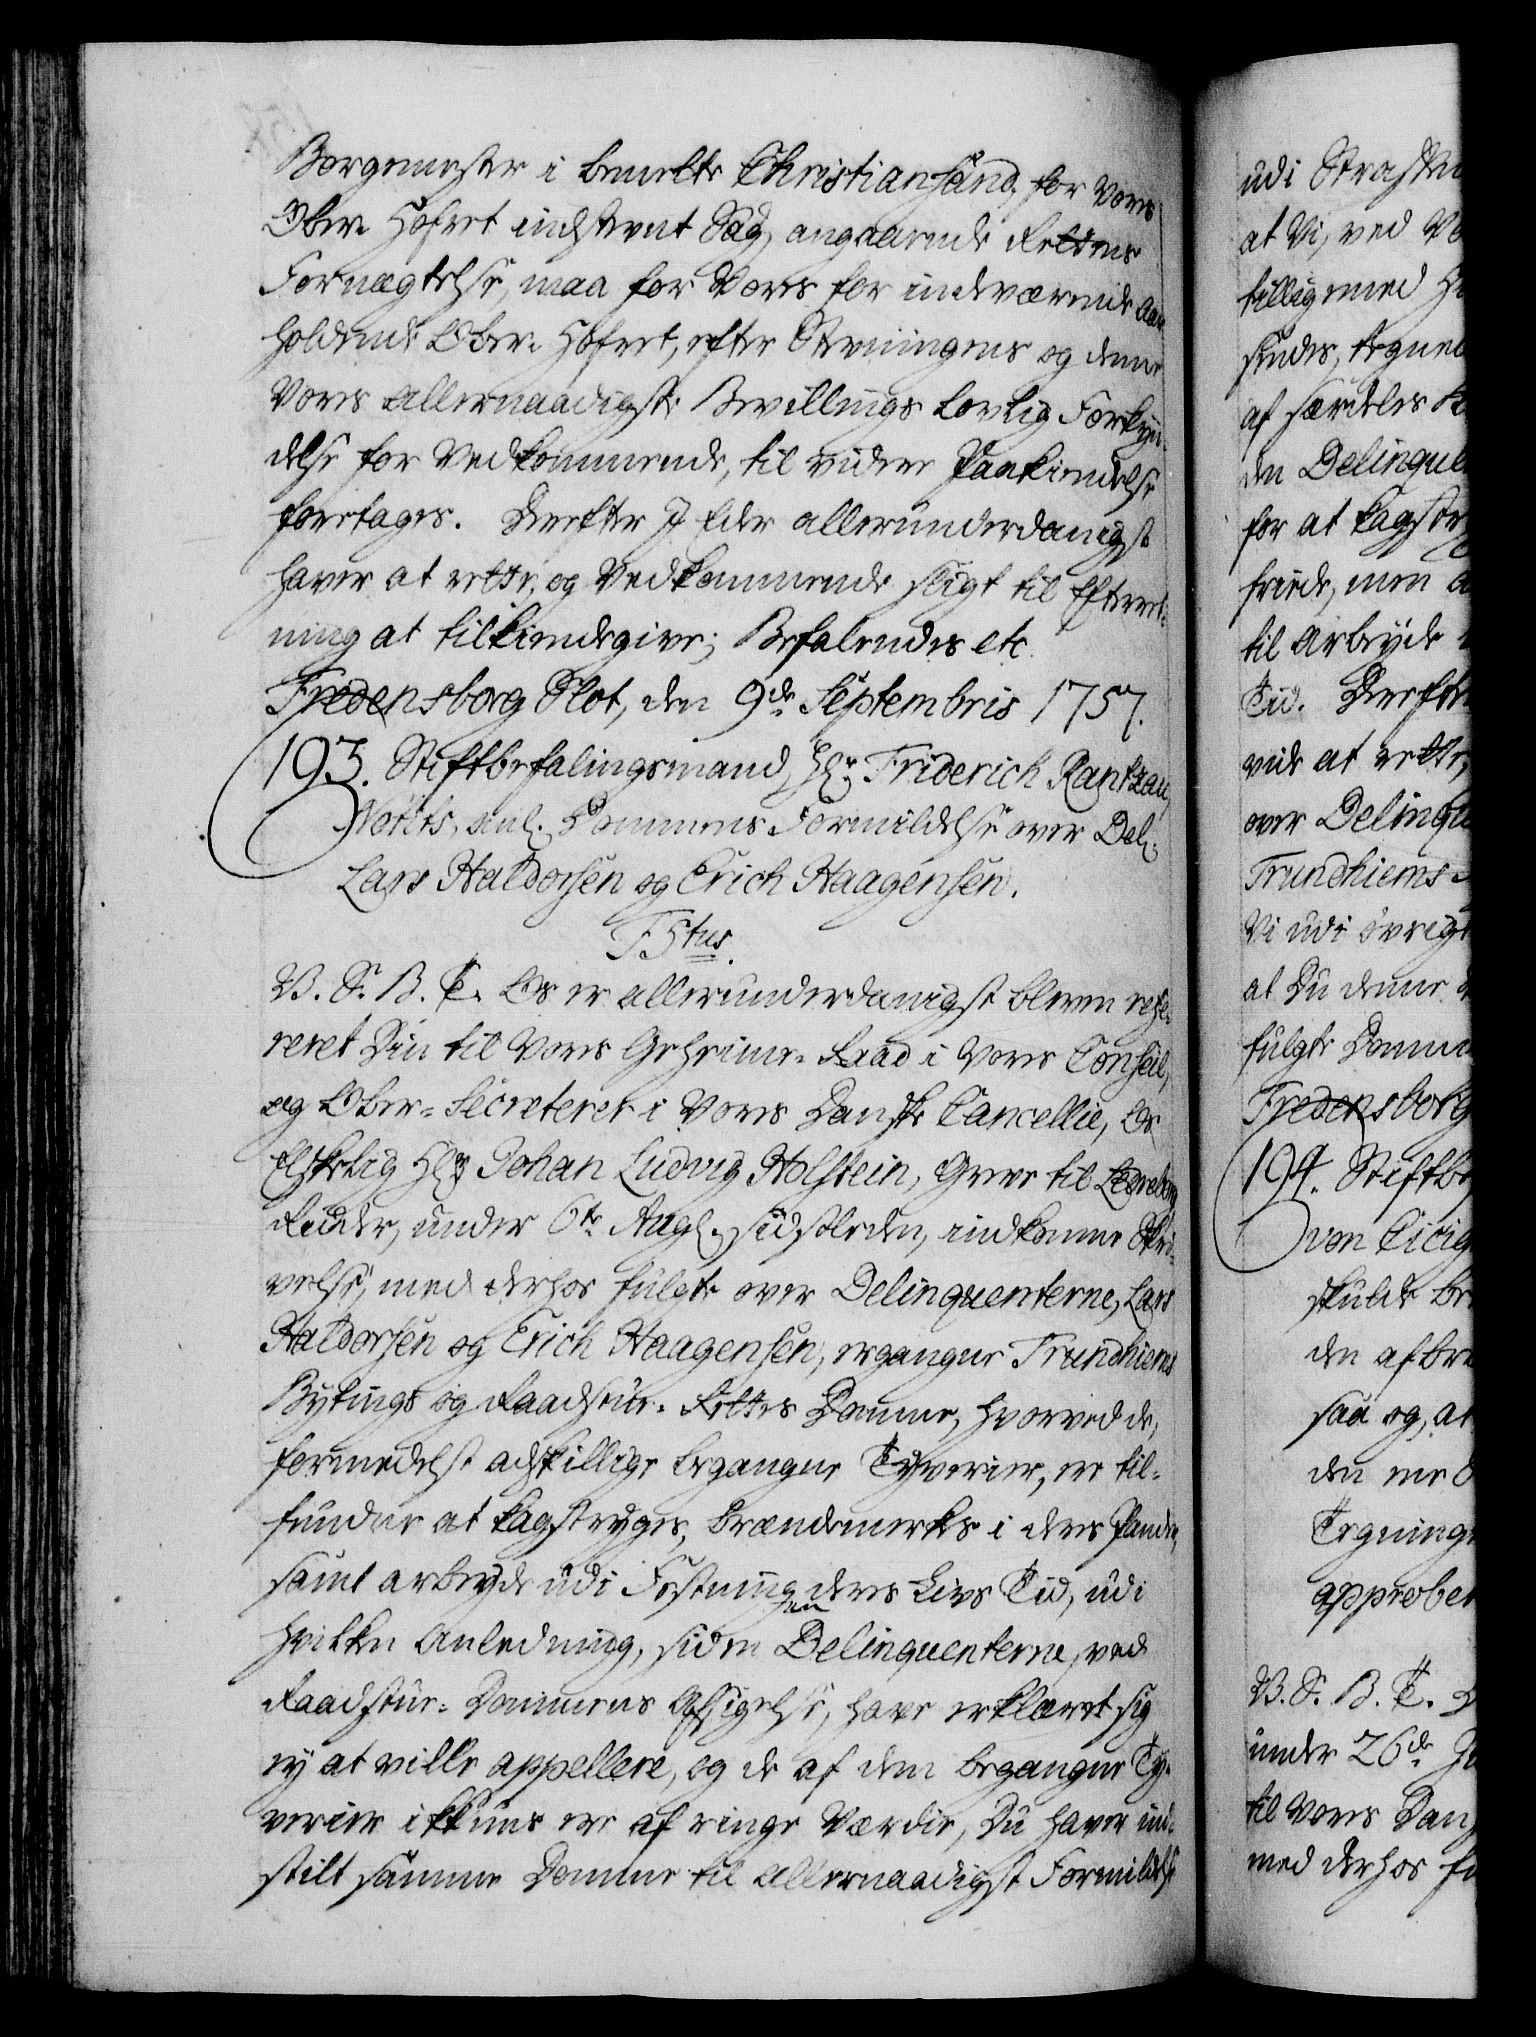 Borgemester i bemelte Christiansand, for Vores
Ober-Hofret indstevnt Sag, angaaende Rettens
Fornægtelse, maa for Vores for indeværende Aar
holdende Ober-Hofret, efter Stevningens og denne
Vores allernaadigste Bevillings lovlig Forkyn-
delse for Vedkommende, til videre Paakiendelse
foretages. Derefter I Eder allerunderdanigst
haver at rette, og Vedkommende sligt til Efterret-
ning at tilkiendegive; Befalendes etc.
Fredensborg Slot, den 9de Septembris 1757.
193. Stiftbefalingsmand, Hr. Friderich Rantzau,
Notits, anl. Dommens Formildelse over Del:
Lars Haldorsen og Erich Haagensen.
F5tus.
V. S. B. T. Os er allerunderdanigst bleven refe-
reret Din til Vores Geheime-Raad i Vores Conseil,
og Ober-Secreterer i Vores Danske Cancellie, Os
Elskelig Hr. Johan Ludvig Holstein, Greve til Ledreborg
Ridder, under 6te Aug. sidstleden, indkomne Skri-
velse, med derhos fulgte over Delinquenterne, Lars
Haldorsen og Erich Haagensen, ergangne Trundhiems
Bytings og Raadstue-Rettes Domme, hvorved de,
formedelst adskillige begangne Tyverier, ere til-
fundne at kagstryges, brændemerkes i deres Pande,
samt arbeyde udi Fæstningen deres Livs Tid, udi
hvilken Anledning, siden Delinquenterne, ved
Raadstue-Dommens Afsigelse, have erklæret sig
ey at ville appellere, og de af dem begangne Ty-
verier ikkuns ere af ringe Værdie, Du haver ind-
stilt samme Domme til allernaadigst Formildelse
udi
at Vi, ved
tilligemed
sendes, tegned
af særdeles
den
for at kagstry
friede, men
til Arbeyde
Tid. Derefter
vide at rette,
over
Trundhiems
Vi udi øvrigt
at Du denne
fulgte Domme
Fredensborg
194.
von
skulde
den
saa og, at
den
Tegning
V. S. B. T.
under 26de
til Vores
med derhos